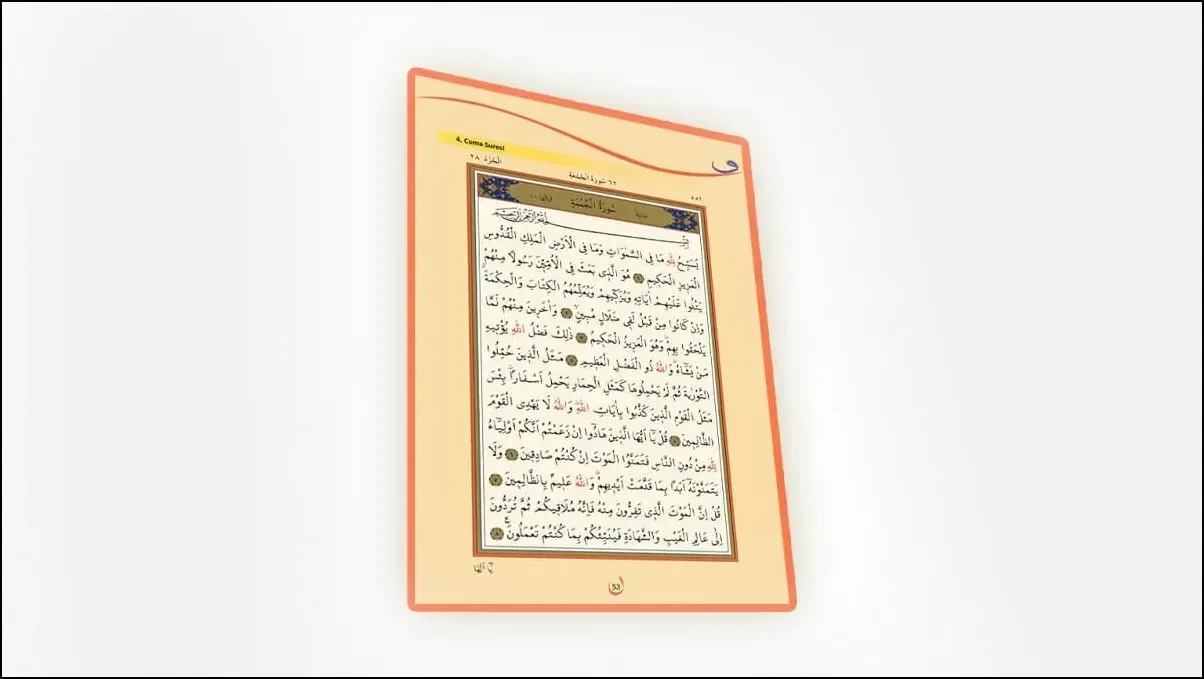 4. Cuma Suresi
اَلْجُزْءُ ٢٨
٦٢ سُورَةُ الْجُمُعَةِ
٥٥٢
سُورَةُ الْجُمُعَةِ
يُسَبِّحُ لِلّٰهِ مَا فِى السَّمٰوَاتِ وَمَا فِى الْاَرْضِ الْمَلِكِ الْقُدُّوسِ
الْعَزِيزِ الْحَكِيمِ ﴿١﴾ هُوَ الَّذٖى بَعَثَ فِى الْاُمِّيّٖنَ رَسُولًا مِنْهُمْ
يَتْلُوا عَلَيْهِمْ اٰيَاتِهٖ وَيُزَكّٖيهِمْ وَيُعَلِّمُهُمُ الْكِتَابَ وَالْحِكْمَةَ
وَاِنْ كَانُوا مِنْ قَبْلُ لَفٖى ضَلَالٍ مُبٖينٍ ﴿٢﴾ وَاٰخَرٖينَ مِنْهُمْ لَمَّا
يَلْحَقُوا بِهِمْ وَهُوَ الْعَزٖيزُ الْحَكٖيمُ ﴿٣﴾ ذٰلِكَ فَضْلُ اللّٰهِ يُؤْتٖيهِ
مَنْ يَشَاءُ وَاللّٰهُ ذُو الْفَضْلِ الْعَظٖيمِ ﴿٤﴾ مَثَلُ الَّذٖينَ حُمِّلُوا
التَّوْرٰيةَ ثُمَّ لَمْ يَحْمِلُوهَا كَمَثَلِ الْحِمَارِ يَحْمِلُ اَسْفَارًا بِئْسَ
مَثَلُ الْقَوْمِ الَّذٖينَ كَذَّبُوا بِاٰيَاتِ اللّٰهِ وَاللّٰهُ لَا يَهْدِى الْقَوْمَ
الظَّالِمٖينَ ﴿٥﴾ قُلْ يَا اَيُّهَا الَّذٖينَ هَادُوا اِنْ زَعَمْتُمْ اَنَّكُمْ اَوْلِيَاءُ
لِلّٰهِ مِنْ دُونِ النَّاسِ فَتَمَنَّوُا الْمَوْتَ اِنْ كُنْتُمْ صَادِقٖينَ ﴿٦﴾ وَلَا
يَتَمَنَّوْنَهُ اَبَدًا بِمَا قَدَّمَتْ اَيْدٖيهِمْ وَاللّٰهُ عَلٖيمٌ بِالظَّالِمٖينَ ﴿٧﴾
قُلْ اِنَّ الْمَوْتَ الَّذٖى تَفِرُّونَ مِنْهُ فَاِنَّهُ مُلَاقٖيكُمْ ثُمَّ تُرَدُّونَ
اِلٰى عَالِمِ الْغَيْبِ وَالشَّهَادَةِ فَيُنَبِّئُكُمْ بِمَا كُنْتُمْ تَعْمَلُونَ ﴿٨﴾
يَا اَيُّهَا
53